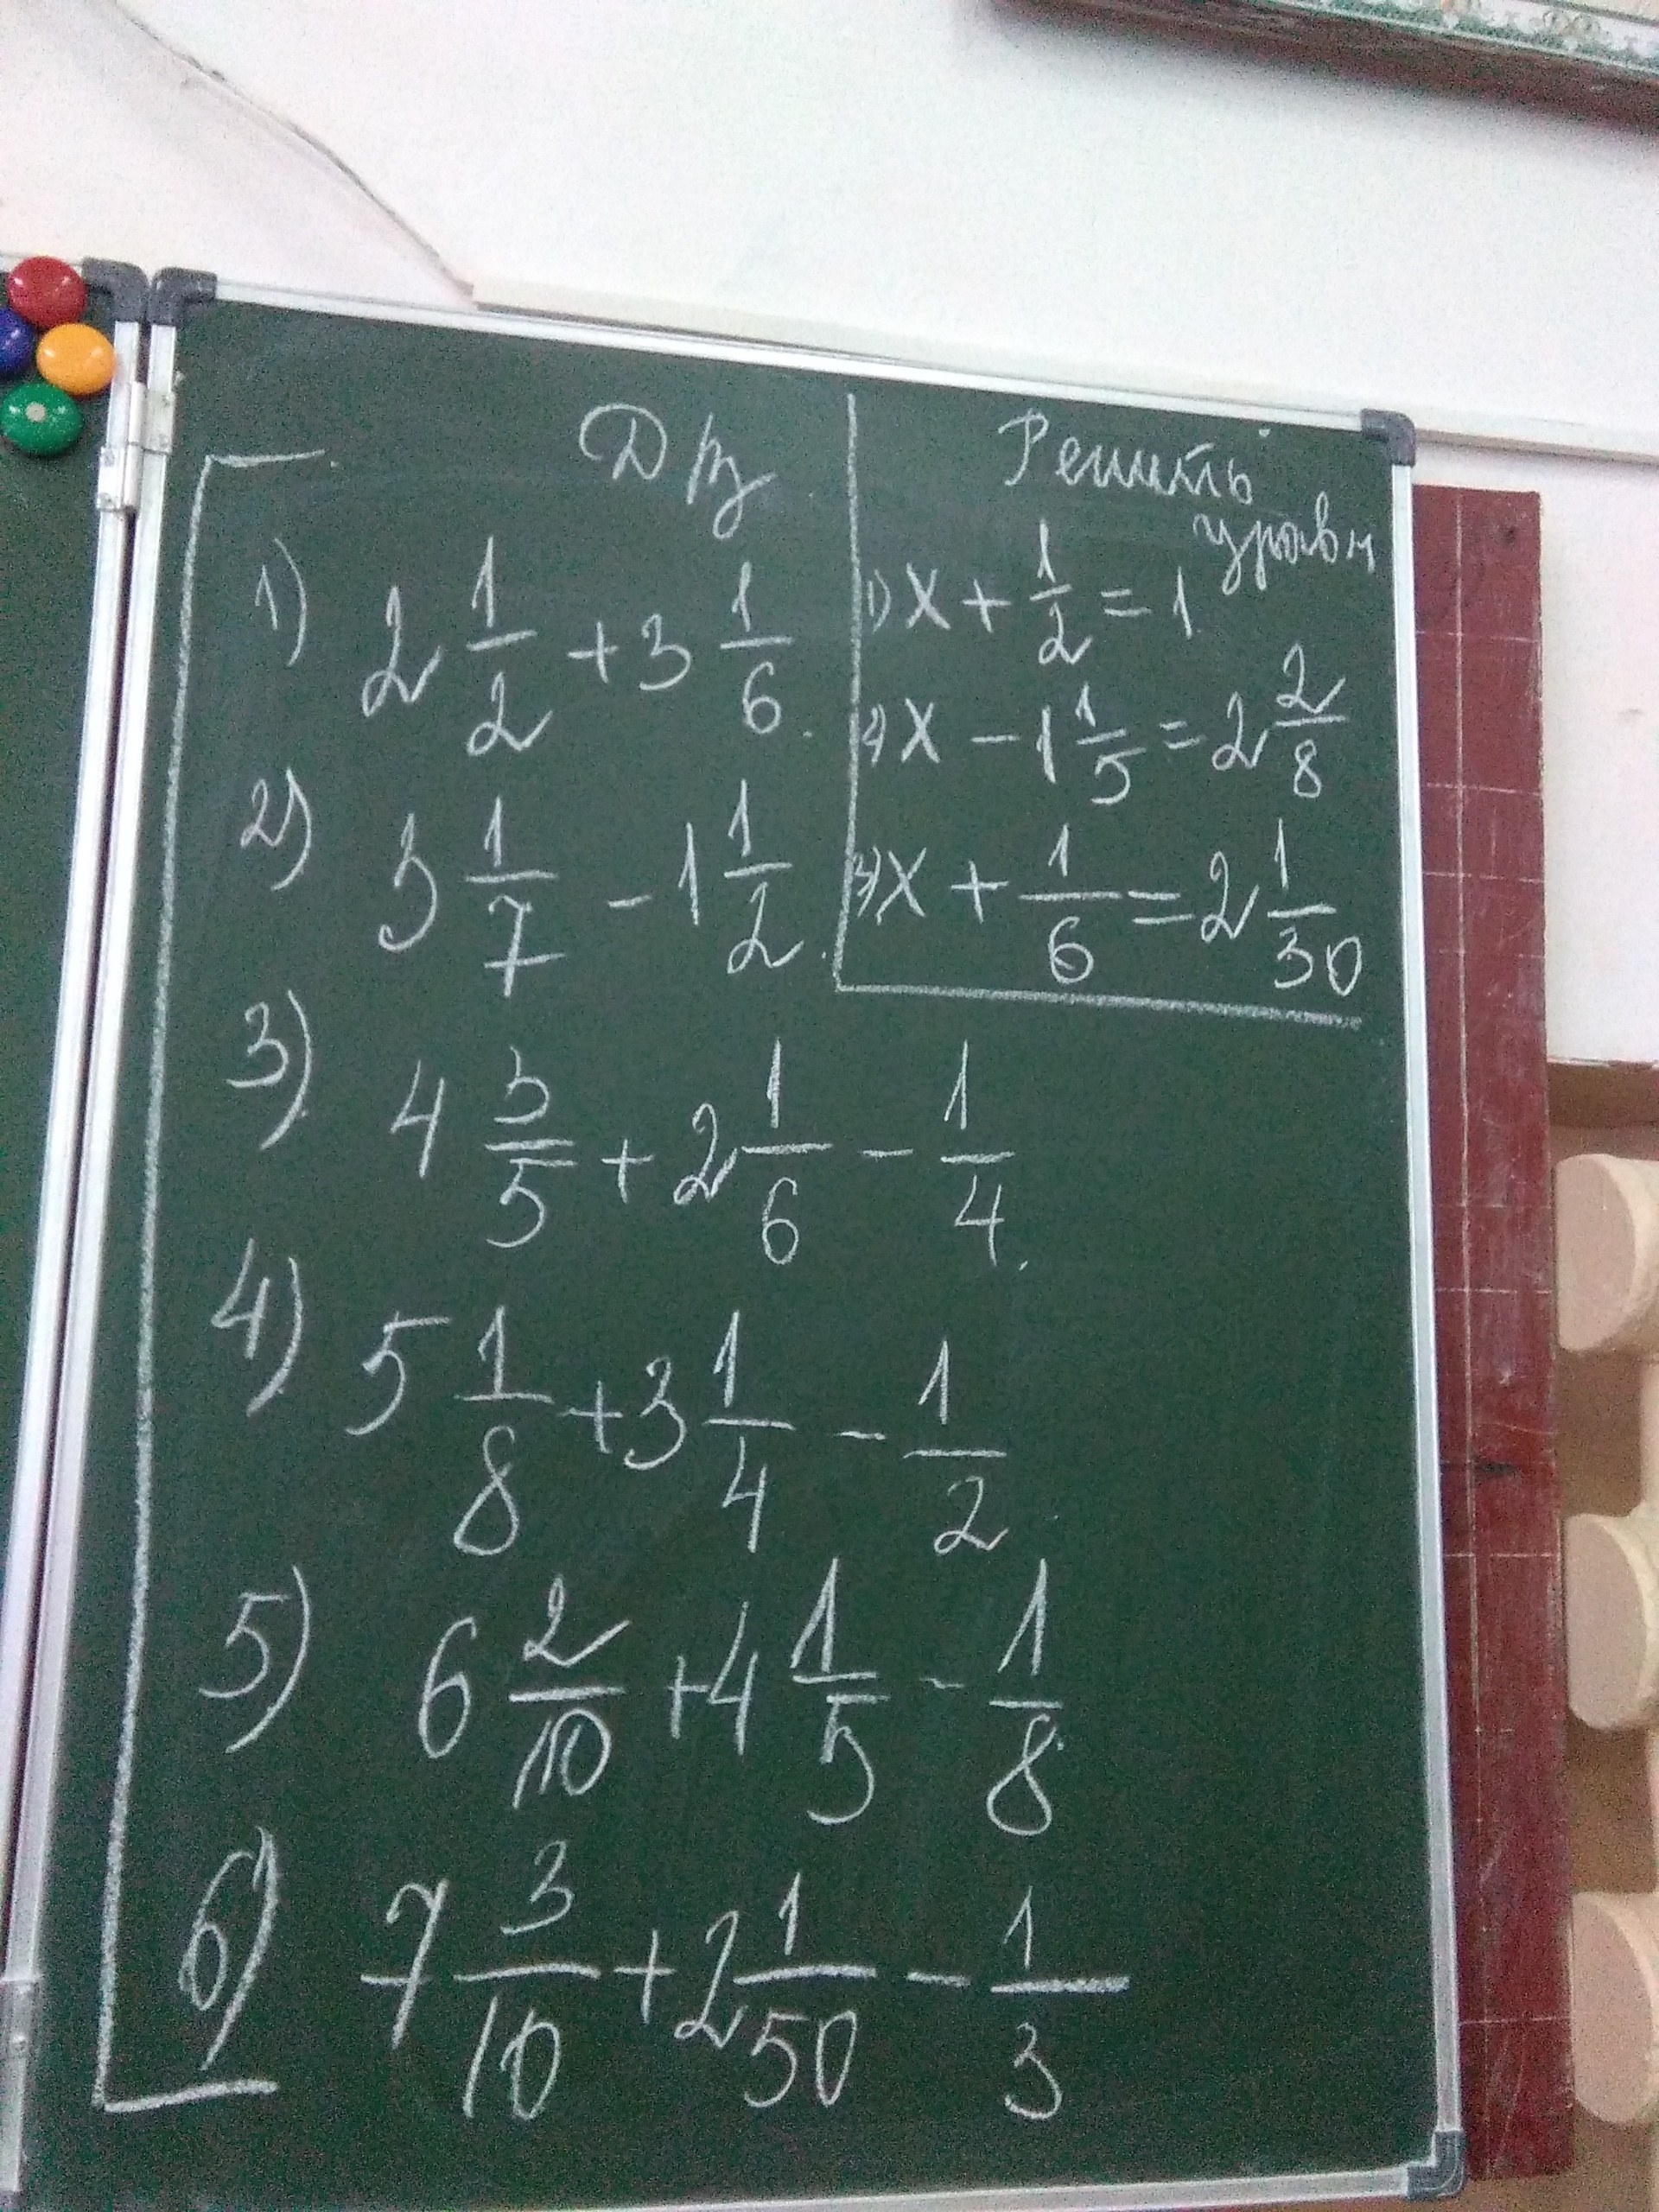 Д/з
1) 2 1/2 + 3 1/6
2) 3 1/7 - 1 1/2
3) 4 3/5 + 2 1/6 - 1/4
4) 5 1/8 + 3 1/4 - 1/2
5) 6 2/10 + 4 1/5 - 1/8
6) 7 3/10 + 2 1/50 - 1/3
Решить
уравн
1) x + 1/2 = 1
2) x - 1 1/5 = 2 2/8
3) x + 1/6 = 2 1/30